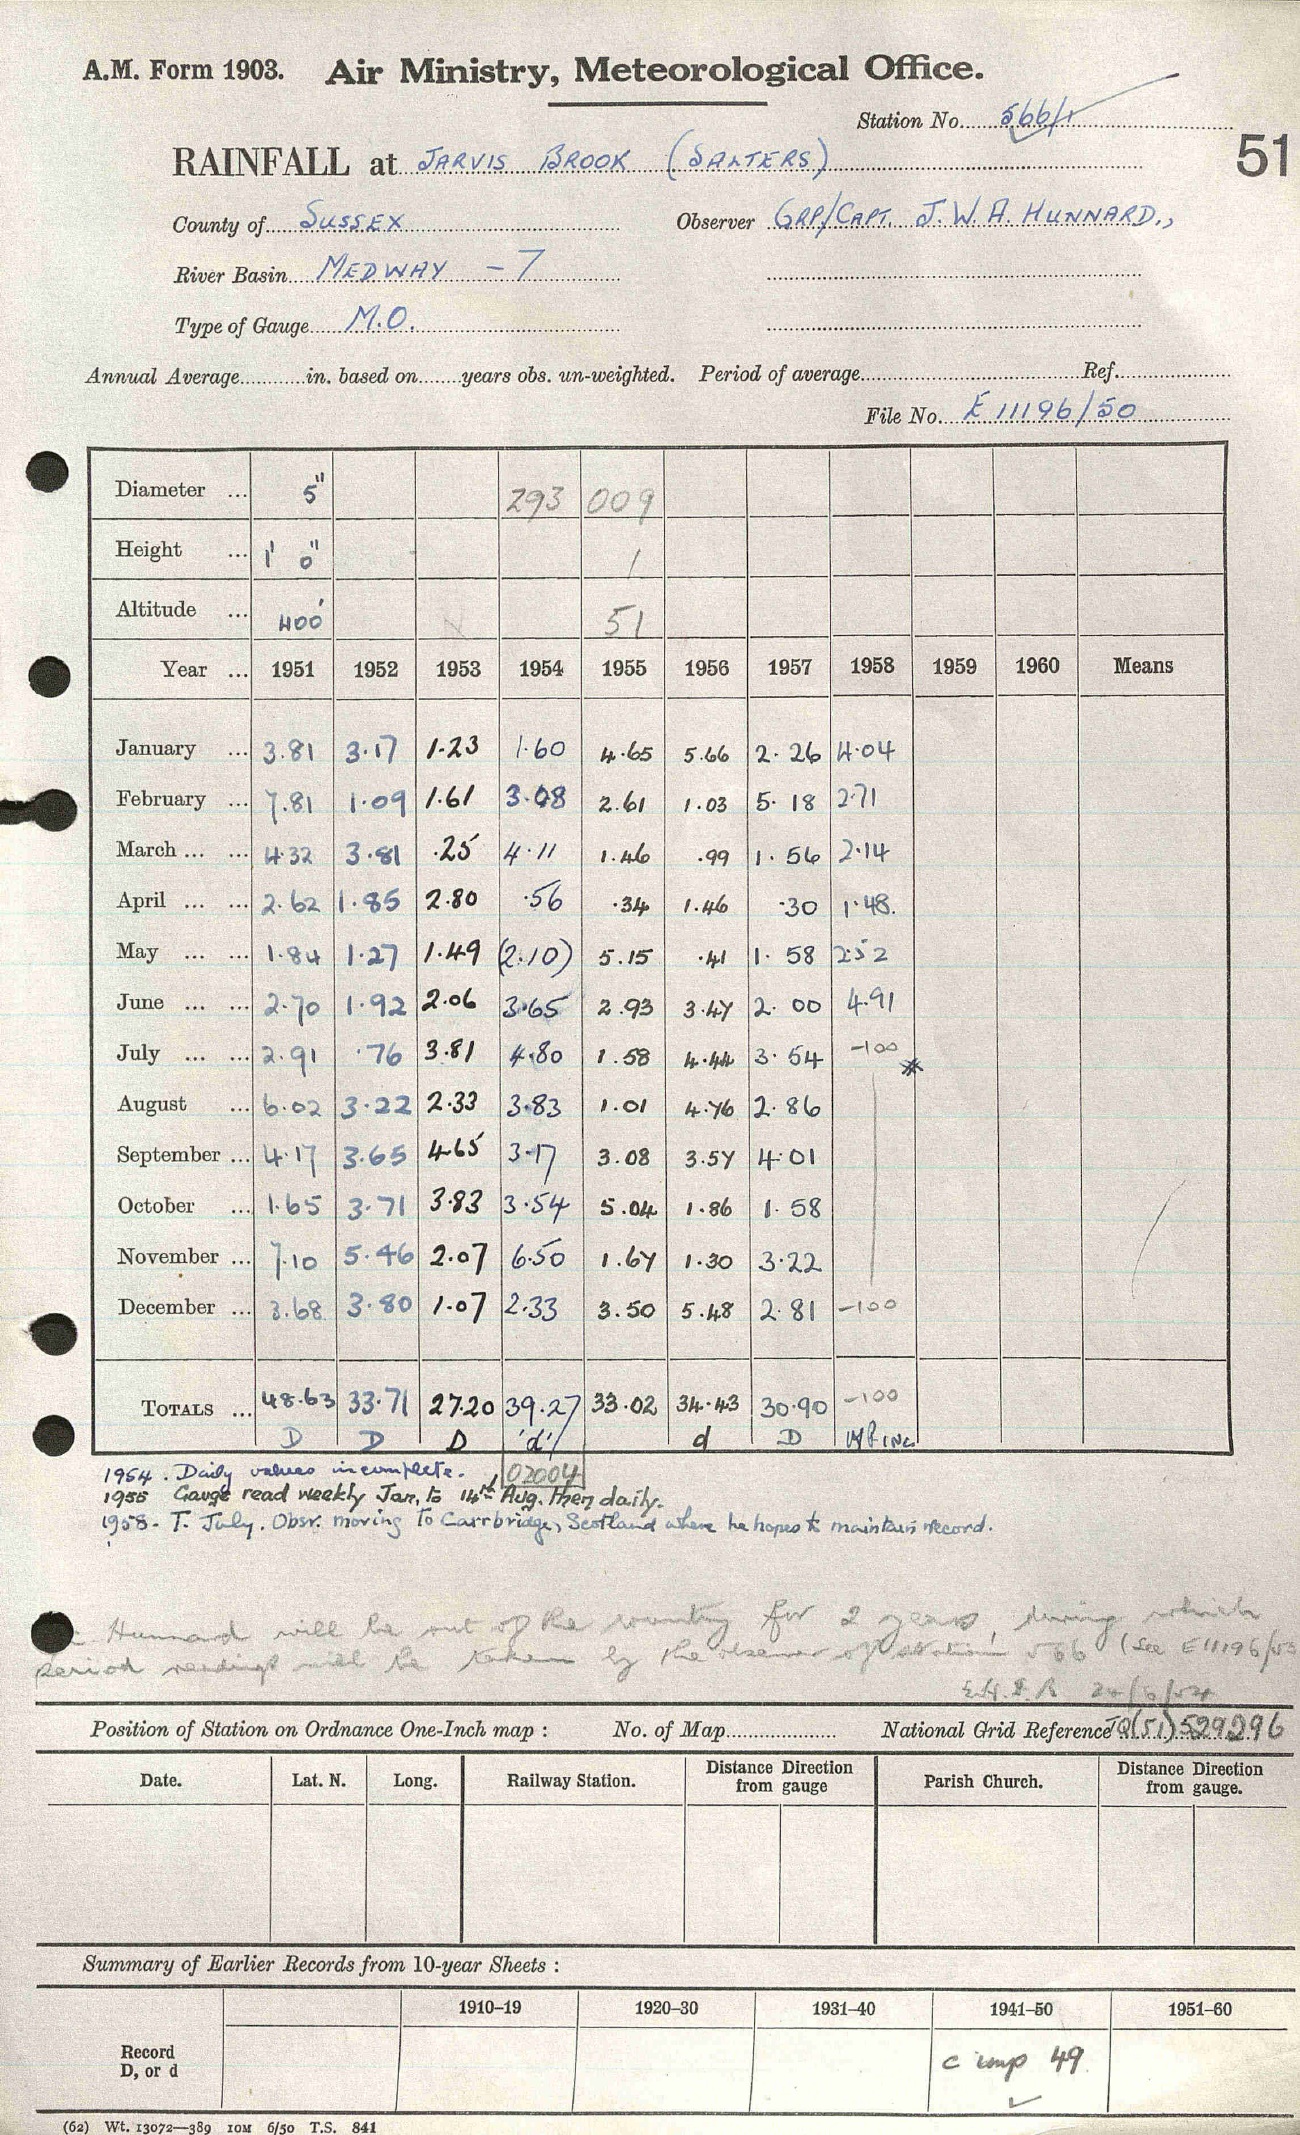 A.M. Form 1903. Air Ministry, Meteorological Office.
Station No. 566/1
51
RAINFALL at JARVIS BROOK (SALTERS)
County of SUSSEX Observer GRP/CAPT. J.W.A. HUNNARD.,
River Basin MEDWAY - 7
Type of Gauge M.O.
Annual Average............in. based on........years obs. un-weighted. Period of average............ Ref............
File No. E 11196/50
Diameter ... 5" 293 009
Height ... 1' 0" 1
Altitude ... 400' 51
Year ... 1951 1952 1953 1954 1955 1956 1957 1958 1959 1960 Means
January ... 3.81 3.17 1.23 1.60 4.65 5.66 2.26 4.04
February ... 7.81 1.09 1.61 3.08 2.61 1.03 5.18 2.71
March ... ... 4.32 3.81 .25 4.11 1.46 .99 1.56 2.14
April ... ... 2.62 1.85 2.80 .56 .34 1.46 .30 1.48.
May ... ... 1.84 1.27 1.49 (2.10) 5.15 .41 1.58 2.52
June ... ... 2.70 1.92 2.06 3.65 2.93 3.47 2.00 4.91
July ... ... 2.91 .76 3.81 4.80 1.58 4.44 3.54 -100 *
August ... 6.02 3.22 2.33 3.83 1.01 4.76 2.86
September ... 4.17 3.65 4.65 3.17 3.08 3.57 4.01
October ... 1.65 3.71 3.83 3.54 5.04 1.86 1.58
November ... 7.10 5.46 2.07 6.50 1.67 1.30 3.22
December ... 3.68 3.80 1.07 2.33 3.50 5.48 2.81 -100
TOTALS ... 48.63 33.71 27.20 39.27 33.02 34.43 30.90 -100
D D D 'd' d D INC
1954. Daily values incomplete. 02004
1955 Gauge read weekly Jan. to 14th Aug. then daily.
1958. T. July. Obsr. moving to Carrbridge, Scotland where he hopes to maintain record.
Hunnard will be out of the country for 2 years, during which
period readings will be taken by the observer of station 566 (See E11196/50
24/5/54
Position of Station on Ordnance One-Inch map : No. of Map.................. National Grid Reference TQ(51)529296
Date. Lat. N. Long. Railway Station. Distance Direction from gauge Parish Church. Distance Direction from gauge.
Summary of Earlier Records from 10-year Sheets :
1910–19 1920–30 1931–40 1941–50 1951–60
Record
D, or d
c imp 49
(62) Wt. 13072—389 10M 6/50 T.S. 841